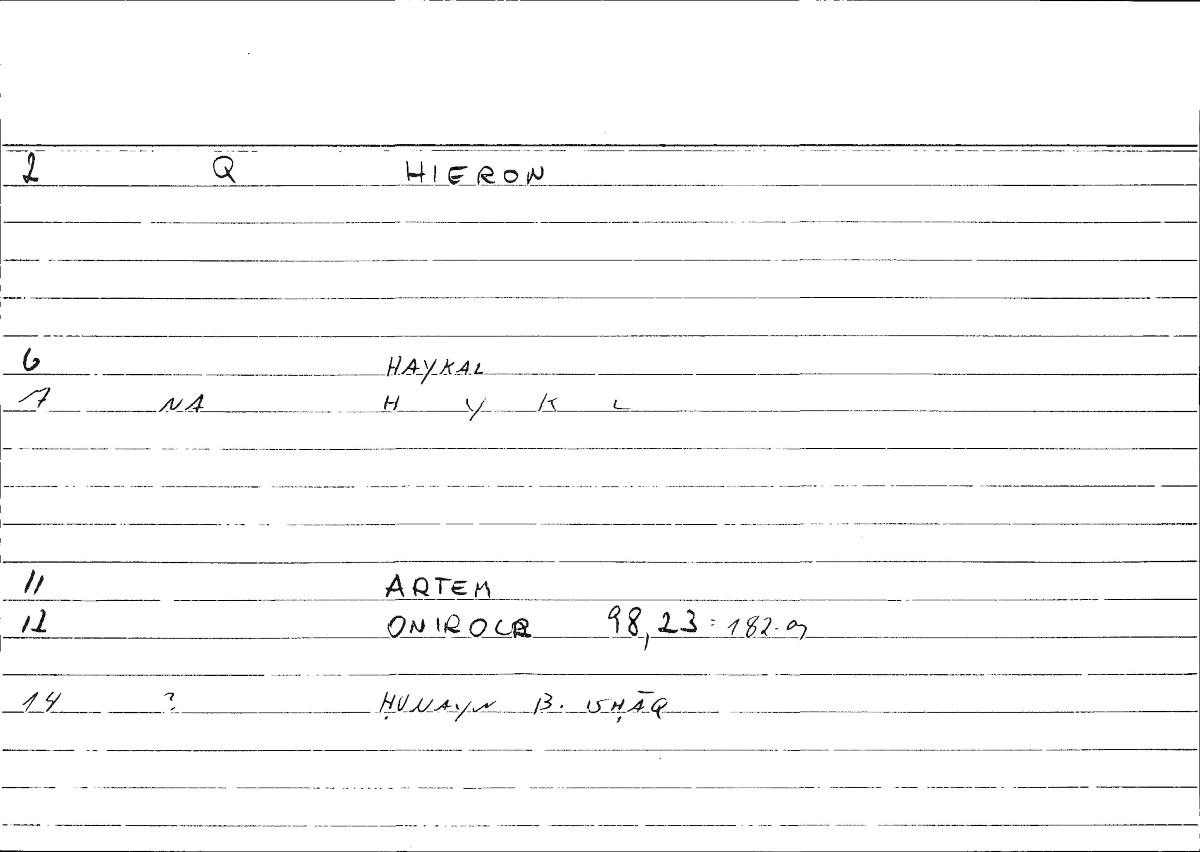 2 Q HIERON
6 HAYKAL
7 NA H Y K L
11 ARTEM
12 ONIROCR 98,23 : 182.9
14 ? ḤUNAYN B. ISḤĀQ